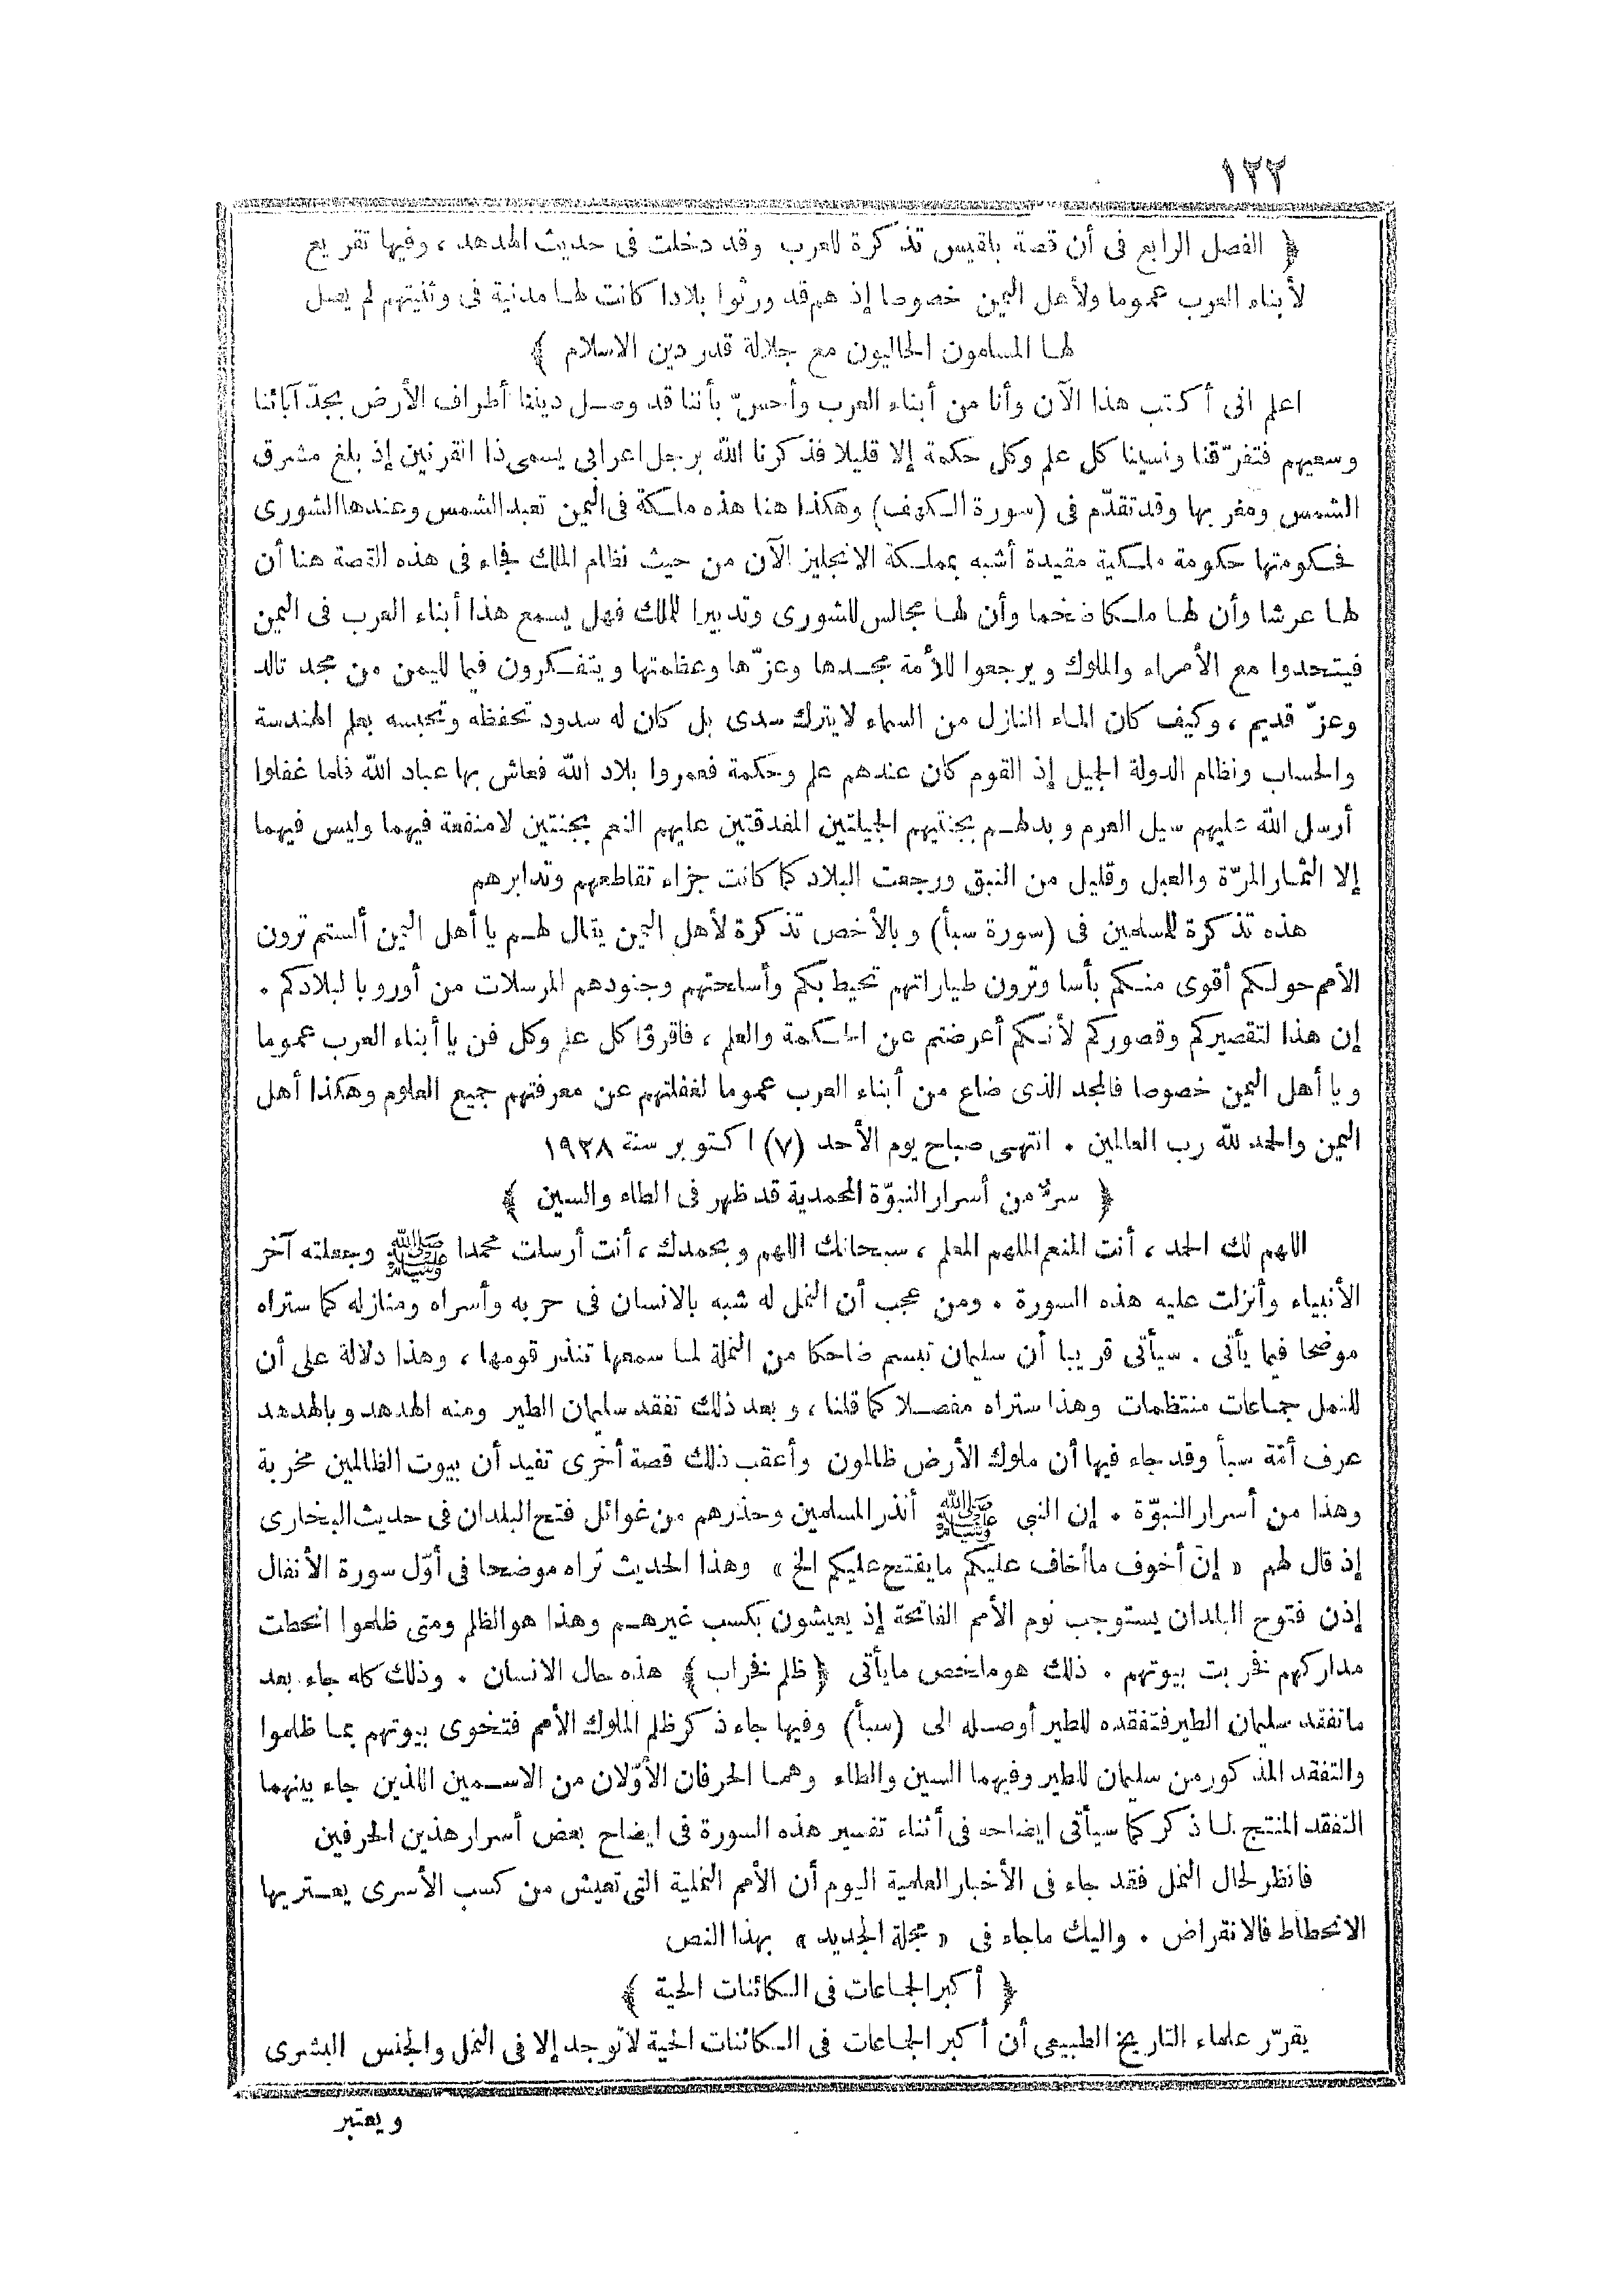 ١٢٢
﴿ الفصل الرابع فى أن قصة بلقيس تذكرة للعرب وقد دخلت فى حديث الهدهد ، وفيها تقريع
لأبناء العرب عموما ولأهل اليمن خصوصا إذ هم قد ورثوا بلادا كانت لها مدنية فى وثنيتهم لم يصل
لها المسلمون الحاليون مع جلالة قدر دين الاسلام ﴾
اعلم انى أكتب هذا الآن وأنا من أبناء العرب وأحسّ بأننا قد وصل ديننا أطراف الأرض بجدّ آبائنا
وسعيهم فتفرّقنا ونسينا كل علم وكل حكمة إلا قليلا فذكرنا الله برجل اعرابى يسمى ذا القرنين إذ بلغ مشرق
الشمس ومغربها وقد تقدّم فى (سورة الكهف) وهكذا هنا هذه ملكة فى اليمن تعبد الشمس وعندها الشورى
فحكومتها حكومة ملكية مقيدة أشبه بمملكة الانجليز الآن من حيث نظام الملك فجاء فى هذه القصة هنا أن
لها عرشا وأن لها ملكا فخما وأن لها مجالس للشورى وتدبيرا للملك فهل يسمع هذا أبناء العرب فى اليمن
فيتحدوا مع الأمراء والملوك ويرجعوا للأمة مجدها وعزّها وعظمتها ويتفكرون فيما لليمن من مجد تالد
وعزّ قديم ، وكيف كان الماء النازل من السماء لا يترك سدى بل كان له سدود تحفظه وتحبسه بعلم الهندسة
والحساب ونظام الدولة الجميل إذ القوم كان عندهم علم وحكمة فعمروا بلاد الله فعاش بها عباد الله فلما غفلوا
أرسل الله عليهم سيل العرم وبدلهم بجنتيهم الجميلتين المغدقتين عليهم النعم بجنتين لامنفعة فيهما وليس فيهما
إلا الثمار المرّة والعبل وقليل من النبق ورجعت البلاد كما كانت جزاء تقاطعهم وتدابرهم
هذه تذكرة للمسلمين فى (سورة سبأ) وبالأخص تذكرة لأهل اليمن يقال لهم يا أهل اليمن ألستم ترون
الأمم حولكم أقوى منكم بأسا وترون طياراتهم تحيط بكم وأسلحتهم وجنودهم المرسلات من أوروبا لبلادكم .
إن هذا لتقصيركم وقصوركم لأنكم أعرضتم عن الحكمة والعلم ، فاقرؤا كل علم وكل فن يا أبناء العرب عموما
ويا أهل اليمن خصوصا فالمجد الذى ضاع من أبناء العرب عموما لغفلتهم عن معرفتهم جميع العلوم وهكذا أهل
اليمن والحمد لله رب العالمين . انتهى صباح يوم الأحد (٧) اكتوبر سنة ١٩٢٨
﴿ سرّ من أسرار النبوّة المحمدية قد ظهر فى الطاء والسين ﴾
اللهم لك الحمد ، أنت المنعم الملهم المعلم ، سبحانك اللهم وبحمدك ، أنت أرسلت محمدا ﷺ وجعلته آخر
الأنبياء وأنزلت عليه هذه السورة . ومن عجب أن النمل له شبه بالانسان فى حربه وأسراه ومنازله كما ستراه
موضحا فيما يأتى . سيأتى قريبا أن سليمان تبسم ضاحكا من النملة لما سمعها تنذر قومها ، وهذا دلالة على أن
للنمل جماعات منتظمات وهذا ستراه مفصلا كما قلنا ، وبعد ذلك تفقد سليمان الطير ومنه الهدهد وبالهدهد
عرف أمّة سبأ وقد جاء فيها أن ملوك الأرض ظالمون وأعقب ذلك قصة أخرى تفيد أن بيوت الظالمين مخربة
وهذا من أسرار النبوّة . إن النبي ﷺ أنذر المسلمين وحذرهم من غوائل فتح البلدان فى حديث البخارى
إذ قال لهم « إن أخوف ماأخاف عليكم مايفتح عليكم الخ » وهذا الحديث تراه موضحا فى أوّل سورة الأنفال
إذن فتوح البلدان يستوجب نوم الأمم الفاتحة إذ يعيشون بكسب غيرهم وهذا هو الظلم ومتى ظلموا انحطت
مداركهم فخربت بيوتهم . ذلك هو ملخص مايأتى ﴿ ظلم فخراب ﴾ هذه حال الانسان . وذلك كله جاء بعد
ماتفقد سليمان الطير فتفقده للطير أوصله الى (سبأ) وفيها جاء ذكر ظلم الملوك الأمم فتخوى بيوتهم بما ظلموا
والتفقد المذكور من سليمان للطير وفيهما السين والطاء وهما الحرفان الأوّلان من الاسمين اللذين جاء بينهما
التفقد المنتج لما ذكر كما سيأتى ايضاحه فى أثناء تفسير هذه السورة فى ايضاح بعض أسرار هذين الحرفين
فانظر لحال النمل فقد جاء فى الأخبار العلمية اليوم أن الأمم النملية التى تعيش من كسب الأسرى يعتريها
الانحطاط فالانقراض . واليك ماجاء فى « مجلة الجديد » بهذا النص
﴿ أكبر الجماعات فى الكائنات الحية ﴾
يقرّر علماء التاريخ الطبيعى أن أكبر الجماعات فى الكائنات الحية لاتوجد إلا فى النمل والجنس البشرى
ويعتبر